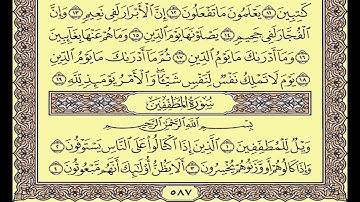 كَٰتِبِينَ ١١ يَعْلَمُونَ مَا تَفْعَلُونَ ١٢ إِنَّ ٱلْأَبْرَارَ لَفِى نَعِيمٍ ١٣ وَإِنَّ
ٱلْفُجَّارَ لَفِى جَحِيمٍ ١٤ يَصْلَوْنَهَا يَوْمَ ٱلدِّينِ ١٥ وَمَا هُمْ عَنْهَا بِغَآئِبِينَ
١٦ وَمَآ أَدْرَىٰكَ مَا يَوْمُ ٱلدِّينِ ١٧ ثُمَّ مَآ أَدْرَىٰكَ مَا يَوْمُ ٱلدِّينِ
١٨ يَوْمَ لَا تَمْلِكُ نَفْسٌ لِّنَفْسٍ شَيْـًٔا وَٱلْأَمْرُ يَوْمَئِذٍ لِّلَّهِ ١٩
سُورَةُ المُطَفِّفِينَ
بِسْمِ ٱللَّهِ ٱلرَّحْمَٰنِ ٱلرَّحِيمِ
وَيْلٌ لِّلْمُطَفِّفِينَ ١ ٱلَّذِينَ إِذَا ٱكْتَالُوا۟ عَلَى ٱلنَّاسِ يَسْتَوْفُونَ ٢
وَإِذَا كَالُوهُمْ أَو وَّزَنُوهُمْ يُخْسِرُونَ ٣ أَلَا يَظُنُّ أُو۟لَٰٓئِكَ أَنَّهُم مَّبْعُوثُونَ ٤
٥٨٧